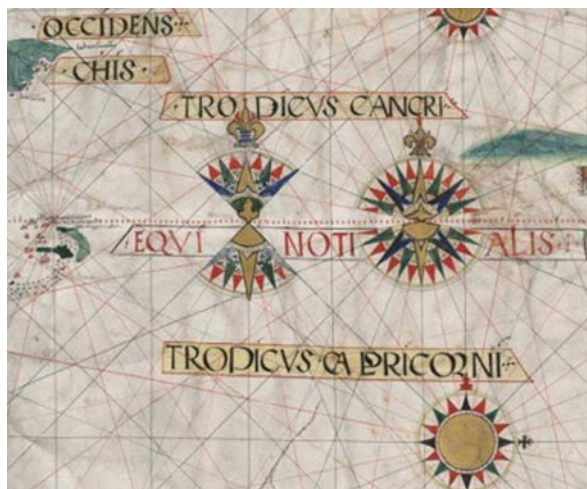 OCCIDENS
CHIS
TROPICVS CANCRI
EQVI NOTI ALIS
TROPICVS CAPRICORNI